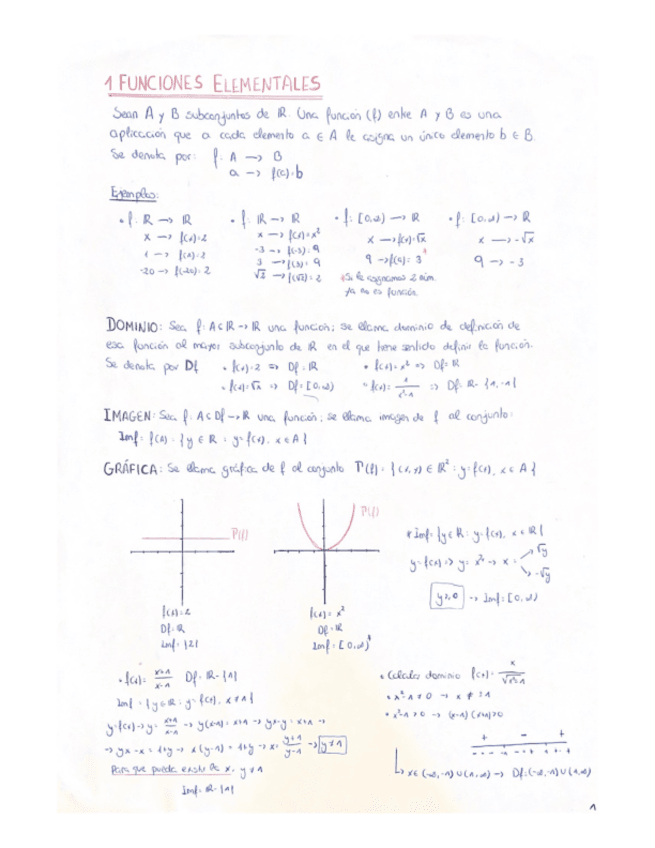 1 FUNCIONES ELEMENTALES
Sean A y B subconjuntos de ℝ. Una función (f) entre A y B es una
aplicación que a cada elemento a ∈ A le asigna un único elemento b ∈ B.
Se denota por: f: A → B
a → f(a)=b
Ejemplos:
• f: ℝ → ℝ
x → f(x)=2
1 → f(1)=2
-20 → f(-20)=2
• f: ℝ → ℝ
x → f(x)=x²
-3 → f(-3)=9
3 → f(3)=9
√2 → f(√2)=2
• f: [0,∞) → ℝ
x → f(x)=√x
9 → f(9)=3*
*Si le asignamos 2 núm.
ya no es función.
• f: [0,∞) → ℝ
x → -√x
9 → -3
DOMINIO: Sea f: A⊂ℝ→ℝ una función; se llama dominio de definición de
esa función al mayor subconjunto de ℝ en el que tiene sentido definir la función.
Se denota por Df • f(x)=2 ⇒ Df=ℝ • f(x)=x² ⇒ Df=ℝ
• f(x)=√x ⇒ Df=[0,∞) • f(x)= 1/(x²-1) ⇒ Df=ℝ-{1,-1}
IMAGEN: Sea f: A⊂Df→ℝ una función; se llama imagen de f al conjunto:
Imf= f(A)= {y ∈ ℝ : y=f(x), x ∈ A}
GRÁFICA: Se llama gráfica de f al conjunto Γ(f)= {(x,y) ∈ ℝ² : y=f(x), x ∈ A}
Γ(f)
f(x)=2
Df=ℝ
Imf={2}
Γ(f)
f(x)=x²
Df=ℝ
Imf=[0,∞)*
* Imf={y∈ℝ: y=f(x), x∈ℝ}
y=f(x) → y=x² → x= √y
-√y
y≥0 → Imf=[0,∞)
• f(x)= (x+1)/(x-1) Df=ℝ-{1}
Imf={y∈ℝ: y=f(x), x≠1}
y=f(x) → y= (x+1)/(x-1) → y(x-1)=x+1 → yx-y=x+1 →
→ yx-x=1+y → x(y-1)=1+y → x= (y+1)/(y-1) → y≠1
Para que pueda existir la x, y≠1
Imf=ℝ-{1}
• Calcula dominio f(x)= x/√(x²-1)
• x²-1≠0 → x≠±1
• x²-1>0 → (x-1)(x+1)>0
+ - +
x∈(-∞,-1)∪(1,∞) → Df=(-∞,-1)∪(1,∞)
1